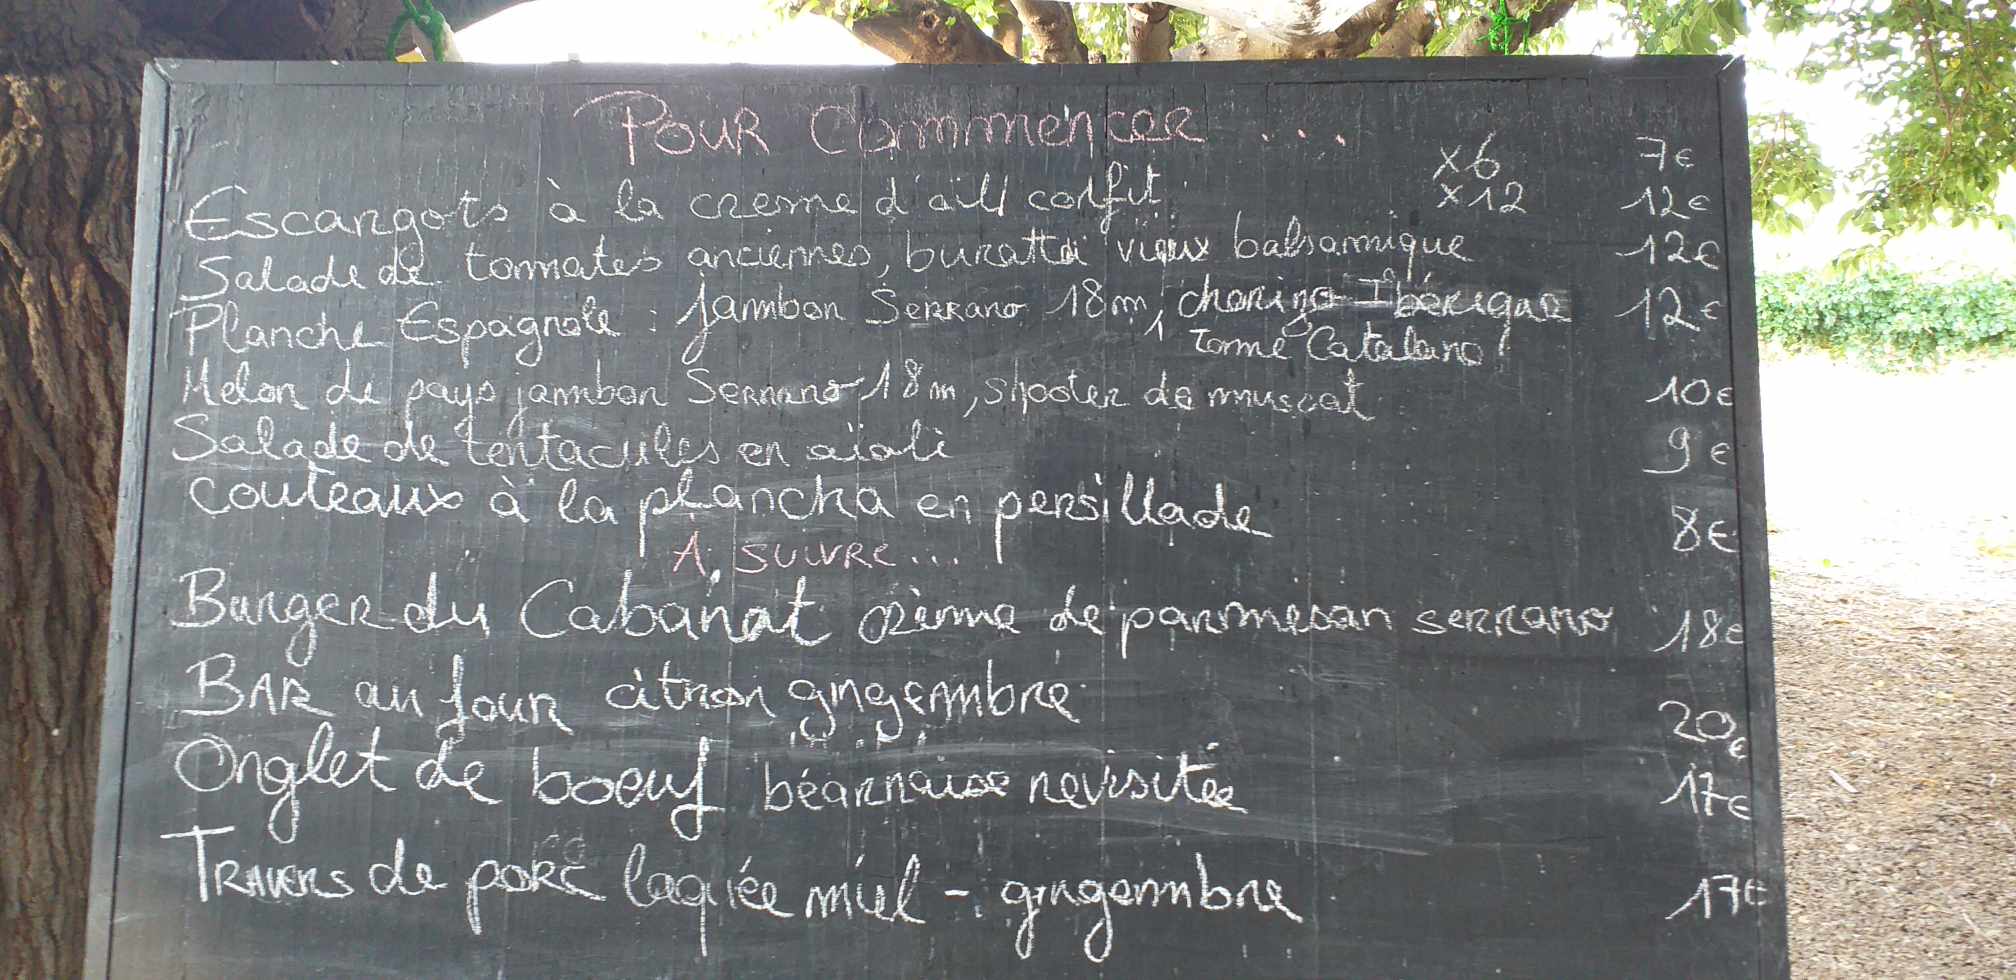 POUR COMMENCER ...
x6 7€
Escargots à la creme d'ail confit x12 12€
Salade de tomates anciennes, buratta vieux balsamique 12€
Planche Espagnole : jambon Serrano 18m, chorizo Ibérique 12€
Tome Catalano
Melon de pays jambon Serrano 18m, shooter de muscat 10€
Salade de tentacules en aïoli 9€
Couteaux à la plancha en persillade 8€
A SUIVRE...
Burger du Cabanat crème de parmesan serrano 18€
BAR au four citron gingembre 20€
Onglet de boeuf béarnaise revisitée 17€
TRAVERS de porc laquée miel - gingembre 17€